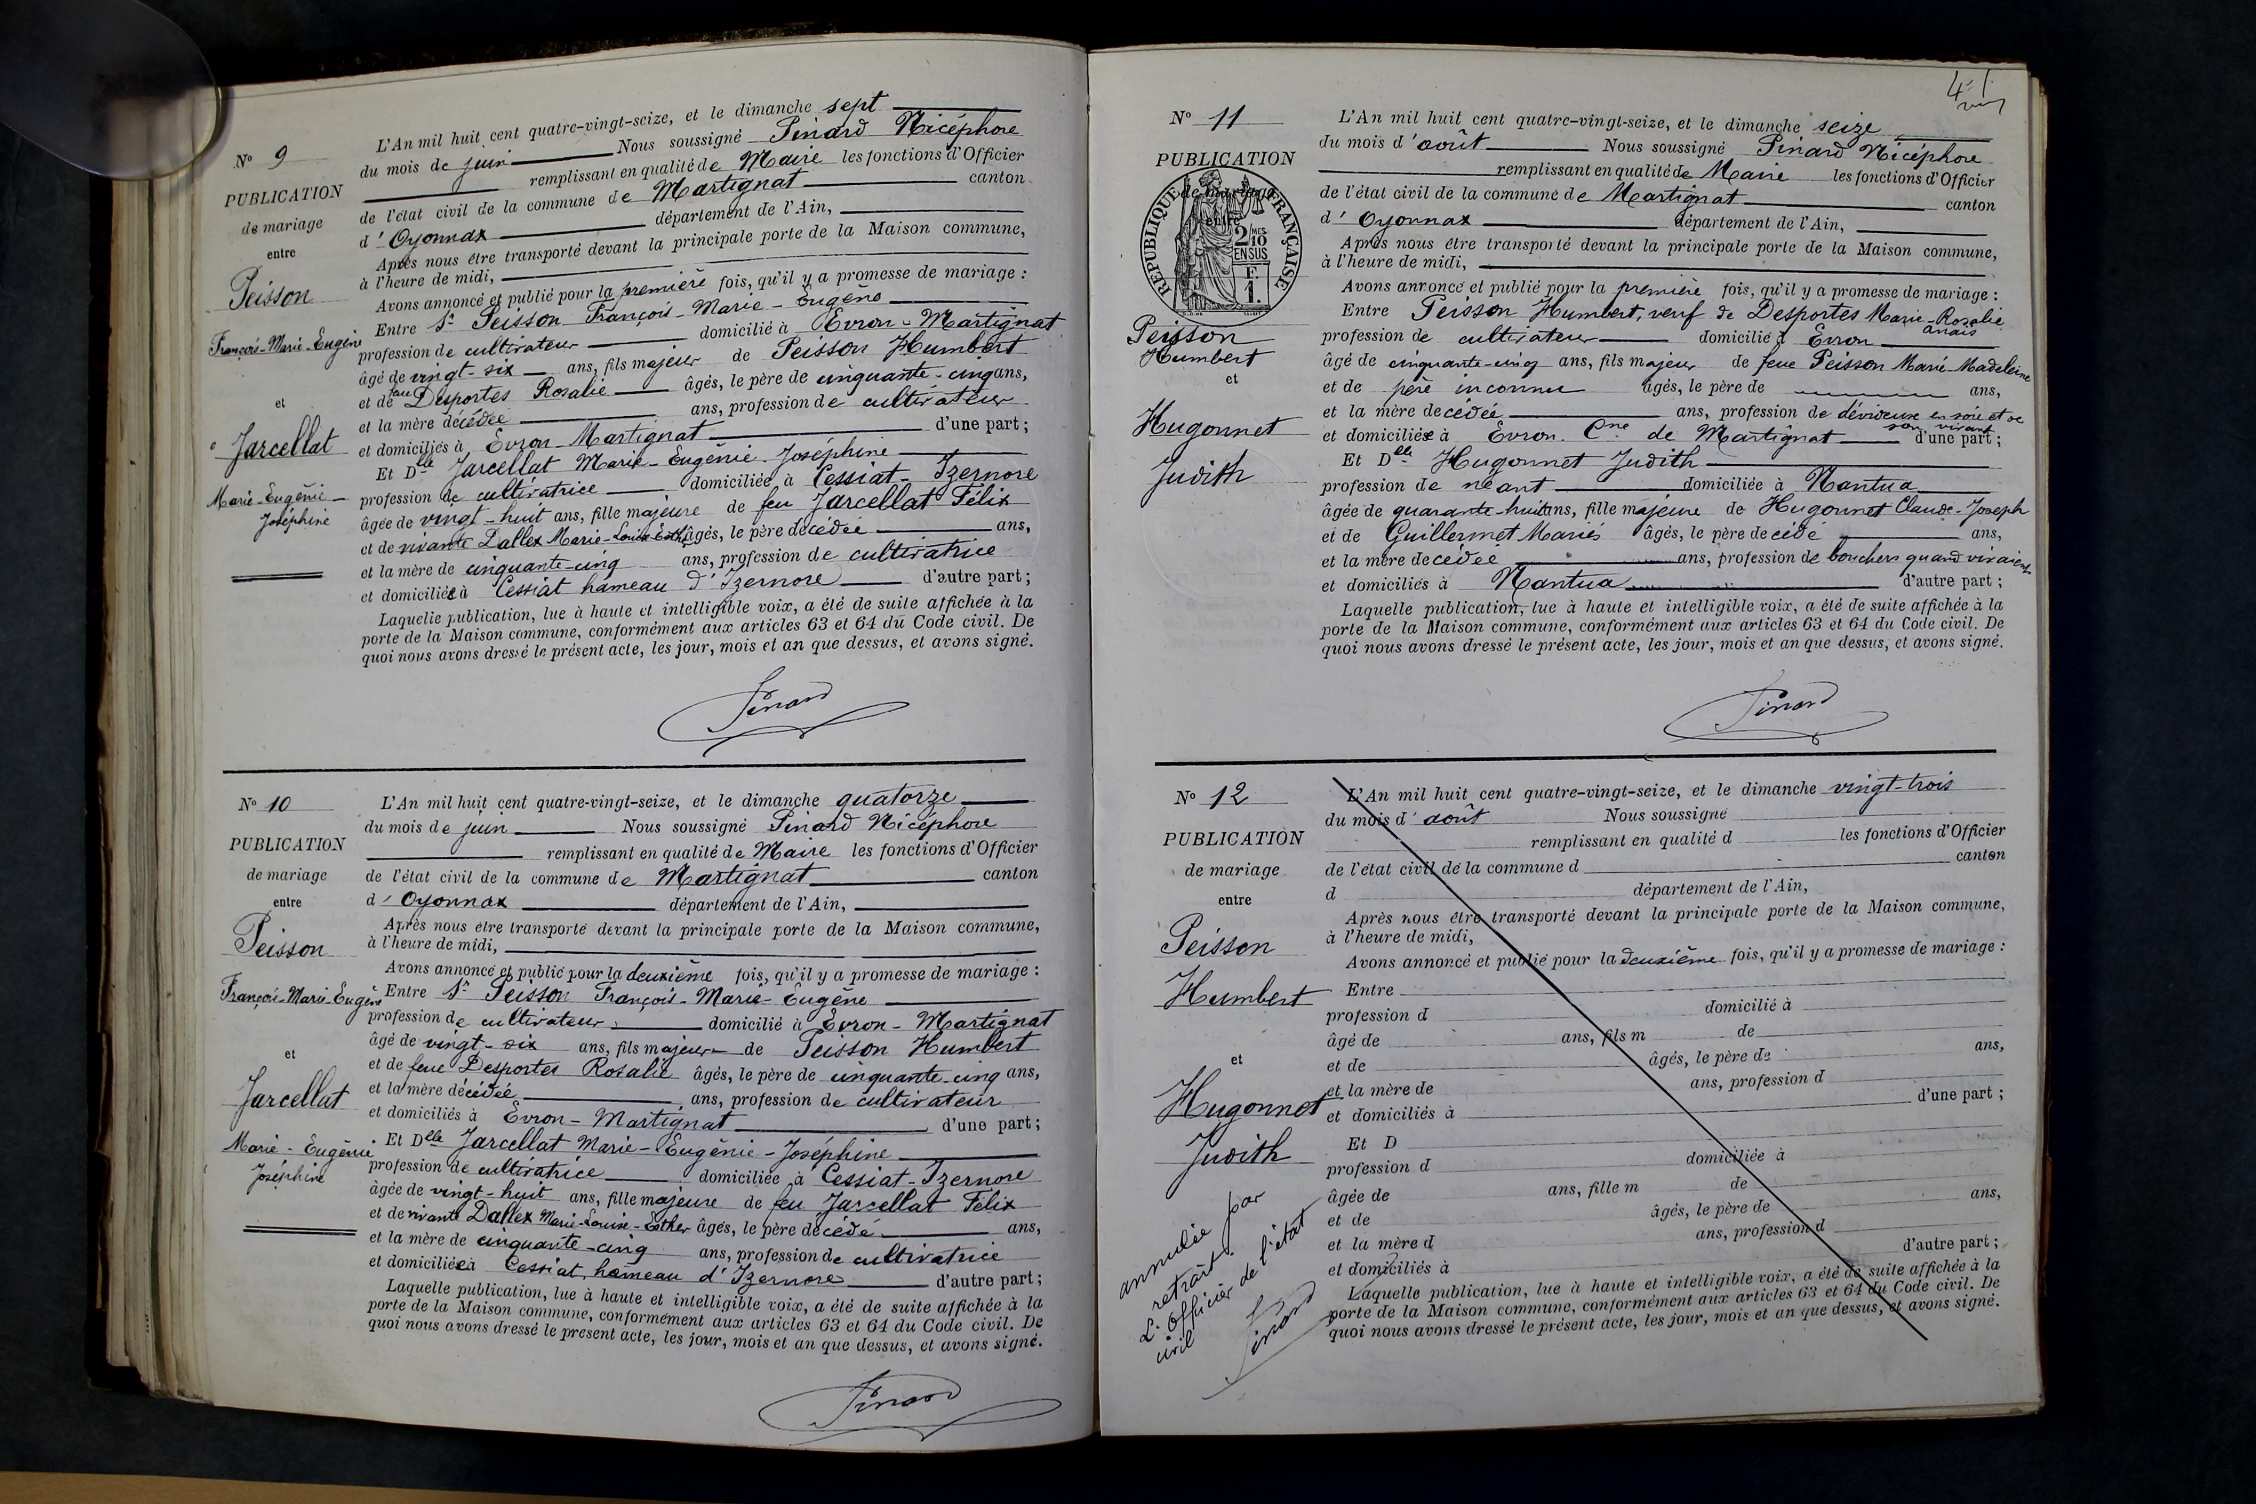 N° 9
PUBLICATION
de mariage
entre
Peisson
François-Marie-Eugène
et
Jarcellat
Marie-Eugénie-
Joséphine
L'An mil huit cent quatre-vingt-seize, et le dimanche sept
du mois de juin Nous soussigné Pinard Nicéphore
remplissant en qualité de Maire les fonctions d'Officier
de l'état civil de la commune de Martignat canton
d'Oyonnax département de l'Ain,
Après nous être transporté devant la principale porte de la Maison commune,
à l'heure de midi,
Avons annoncé et publié pour la première fois, qu'il y a promesse de mariage :
Entre Sr Peisson François-Marie-Eugène
profession de cultivateur domicilié à Evron-Martignat
âgé de vingt-six ans, fils majeur de Peisson Humbert
et de feue Desportes Rosalie âgés, le père de cinquante-cinq ans,
et la mère décédée ans, profession de cultivateur
et domiciliés à Evron Martignat d'une part ;
Et Dlle Jarcellat Marie-Eugénie-Joséphine
profession de cultivatrice domiciliée à Cessiat-Izernore
âgée de vingt-huit ans, fille majeure de feu Jarcellat Félix
et de vivante Dallex Marie-Louise-Esther âgés, le père décédée ans,
et la mère de cinquante-cinq ans, profession de cultivatrice
et domiciliée à Cessiat hameau d'Izernore d'autre part ;
Laquelle publication, lue à haute et intelligible voix, a été de suite affichée à la
porte de la Maison commune, conformément aux articles 63 et 64 du Code civil. De
quoi nous avons dressé le présent acte, les jour, mois et an que dessus, et avons signé.
Pinard
N° 10
PUBLICATION
de mariage
entre
Peisson
François-Marie-Eugène
et
Jarcellat
Marie-Eugénie
Joséphine
L'An mil huit cent quatre-vingt-seize, et le dimanche quatorze
du mois de juin Nous soussigné Pinard Nicéphore
remplissant en qualité de Maire les fonctions d'Officier
de l'état civil de la commune de Martignat canton
d'Oyonnax département de l'Ain,
Après nous être transporté devant la principale porte de la Maison commune,
à l'heure de midi,
Avons annoncé et publié pour la deuxième fois, qu'il y a promesse de mariage :
Entre Sr Peisson François-Marie-Eugène
profession de cultivateur domicilié à Evron-Martignat
âgé de vingt-six ans, fils majeur de Peisson Humbert
et de feue Desportes Rosalie âgés, le père de cinquante-cinq ans,
et la mère décédée ans, profession de cultivateur
et domiciliés à Evron-Martignat d'une part ;
Et Dlle Jarcellat Marie-Eugénie-Joséphine
profession de cultivatrice domiciliée à Cessiat-Izernore
âgée de vingt-huit ans, fille majeure de feu Jarcellat Félix
et de vivante Dallex Marie-Louise-Esther âgés, le père décédé ans,
et la mère de cinquante-cinq ans, profession de cultivatrice
et domiciliée à Cessiat, hameau d'Izernore d'autre part ;
Laquelle publication, lue à haute et intelligible voix, a été de suite affichée à la
porte de la Maison commune, conformément aux articles 63 et 64 du Code civil. De
quoi nous avons dressé le présent acte, les jour, mois et an que dessus, et avons signé.
Pinard
N° 11
PUBLICATION
de mariage
entre
RÉPUBLIQUE FRANÇAISE
2/10 MES
EN SUS
F.
1.
Peisson
Humbert
et
Hugonnet
Judith
L'An mil huit cent quatre-vingt-seize, et le dimanche seize
du mois d'août Nous soussigné Pinard Nicéphore
remplissant en qualité de Maire les fonctions d'Officier
de l'état civil de la commune de Martignat canton
d'Oyonnax département de l'Ain,
Après nous être transporté devant la principale porte de la Maison commune,
à l'heure de midi,
Avons annoncé et publié pour la première fois, qu'il y a promesse de mariage :
Entre Peisson Humbert, veuf de Desportes Marie-Rosalie
anaïs
profession de cultivateur domicilié à Evron
âgé de cinquante-cinq ans, fils majeur de feue Peisson Marie Madeleine
et de père inconnu âgés, le père de ans,
et la mère décédée ans, profession de dévideuse en soie et de
son vivant
et domiciliée à Evron. Cne de Martignat d'une part ;
Et Dlle Hugonnet Judith
profession de néant domiciliée à Nantua
âgée de quarante-huit ans, fille majeure de Hugonnet Claude-Joseph
et de Guillermet Mariés âgés, le père décédé ans,
et la mère décédée ans, profession de bouchers quand vivaient
et domiciliés à Nantua d'autre part ;
Laquelle publication, lue à haute et intelligible voix, a été de suite affichée à la
porte de la Maison commune, conformément aux articles 63 et 64 du Code civil. De
quoi nous avons dressé le présent acte, les jour, mois et an que dessus, et avons signé.
Pinard
N° 12
PUBLICATION
de mariage
entre
Peisson
Humbert
et
Hugonnet
Judith
annulée par
retrait
L'officier de l'état
civil
Pinard
L'An mil huit cent quatre-vingt-seize, et le dimanche vingt-trois
du mois d'août Nous soussigné
remplissant en qualité d les fonctions d'Officier
de l'état civil de la commune d canton
d département de l'Ain,
Après nous être transporté devant la principale porte de la Maison commune,
à l'heure de midi,
Avons annoncé et publié pour la deuxième fois, qu'il y a promesse de mariage :
Entre
profession d domicilié à
âgé de ans, fils m de
et de âgés, le père de ans,
et la mère de ans, profession d
et domiciliés à d'une part ;
Et D
profession d domiciliée à
âgée de ans, fille m de
et de âgés, le père de ans,
et la mère d ans, profession d
et domiciliés à d'autre part ;
Laquelle publication, lue à haute et intelligible voix, a été de suite affichée à la
porte de la Maison commune, conformément aux articles 63 et 64 du Code civil. De
quoi nous avons dressé le présent acte, les jour, mois et an que dessus, et avons signé.